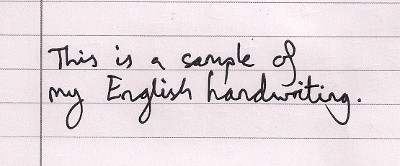 This is a sample of
my English handwriting.